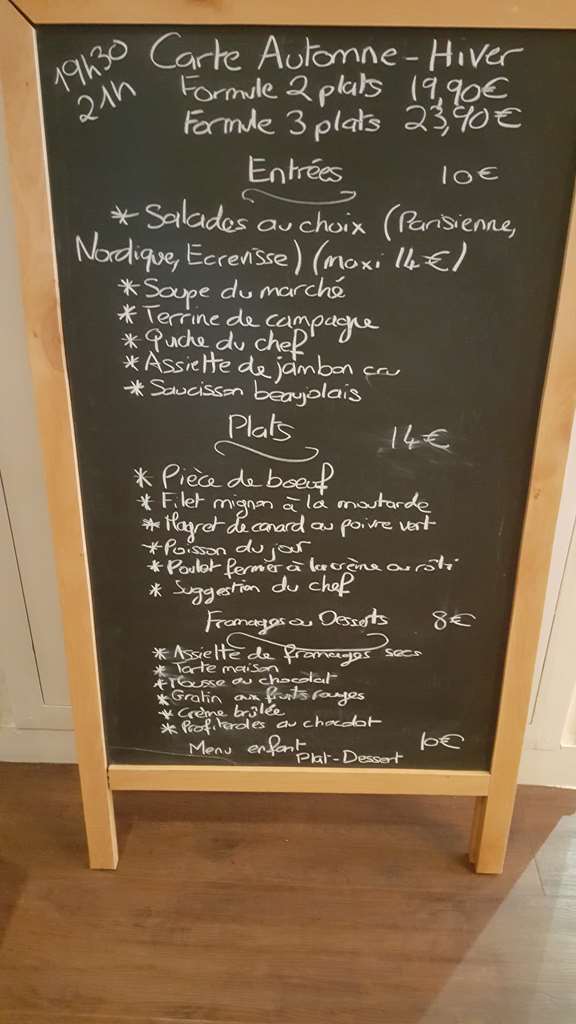 19h30
21h
Carte Automne-Hiver
Formule 2 plats 19,90€
Formule 3 plats 23,90€
Entrées 10€
* Salades au choix (Parisienne,
Nordique, Ecrevisse) (maxi 14€)
* Soupe du marché
* Terrine de campagne
* Quche du chef
* Assiette de jambon cru
* Saucisson beaujolais
Plats 14€
* Pièce de boeuf
* Filet mignon à la moutarde
* Magret de canard au poivre vert
* Poisson du jour
* Poulet fermier à la crème ou rôti
* Suggestion du chef
Fromages ou Desserts 8€
* Assiette de fromages secs
* Tarte maison
* Mousse au chocolat
* Gratin aux fruits rouges
* Crème brûlée
* Profiteroles au chocolat
Menu enfant 10€
Plat-Dessert